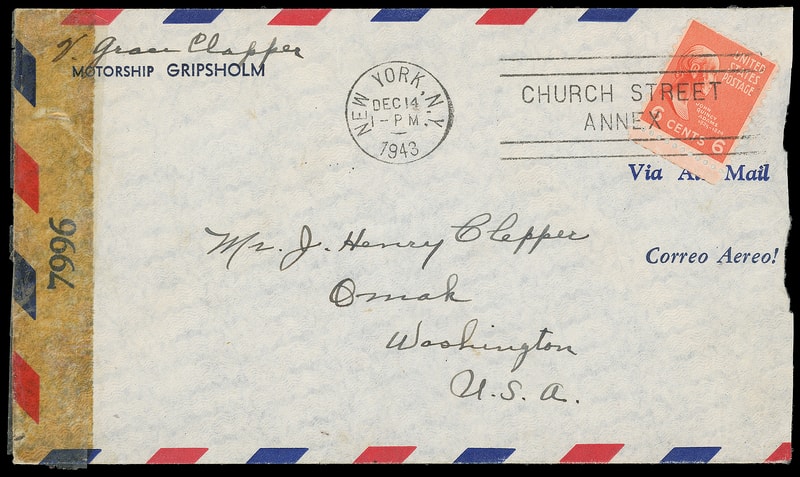 V. Grace Clapper
MOTORSHIP GRIPSHOLM
NEW YORK, N.Y.
DEC 14
1-PM
1943
CHURCH STREET
ANNEX
UNITED
STATES
POSTAGE
JOHN
QUINCY
ADAMS
6 CENTS 6
Via Air Mail
Correo Aereo!
7996
Mr. J. Henry Clapper
Omak
Washington
U.S.A.